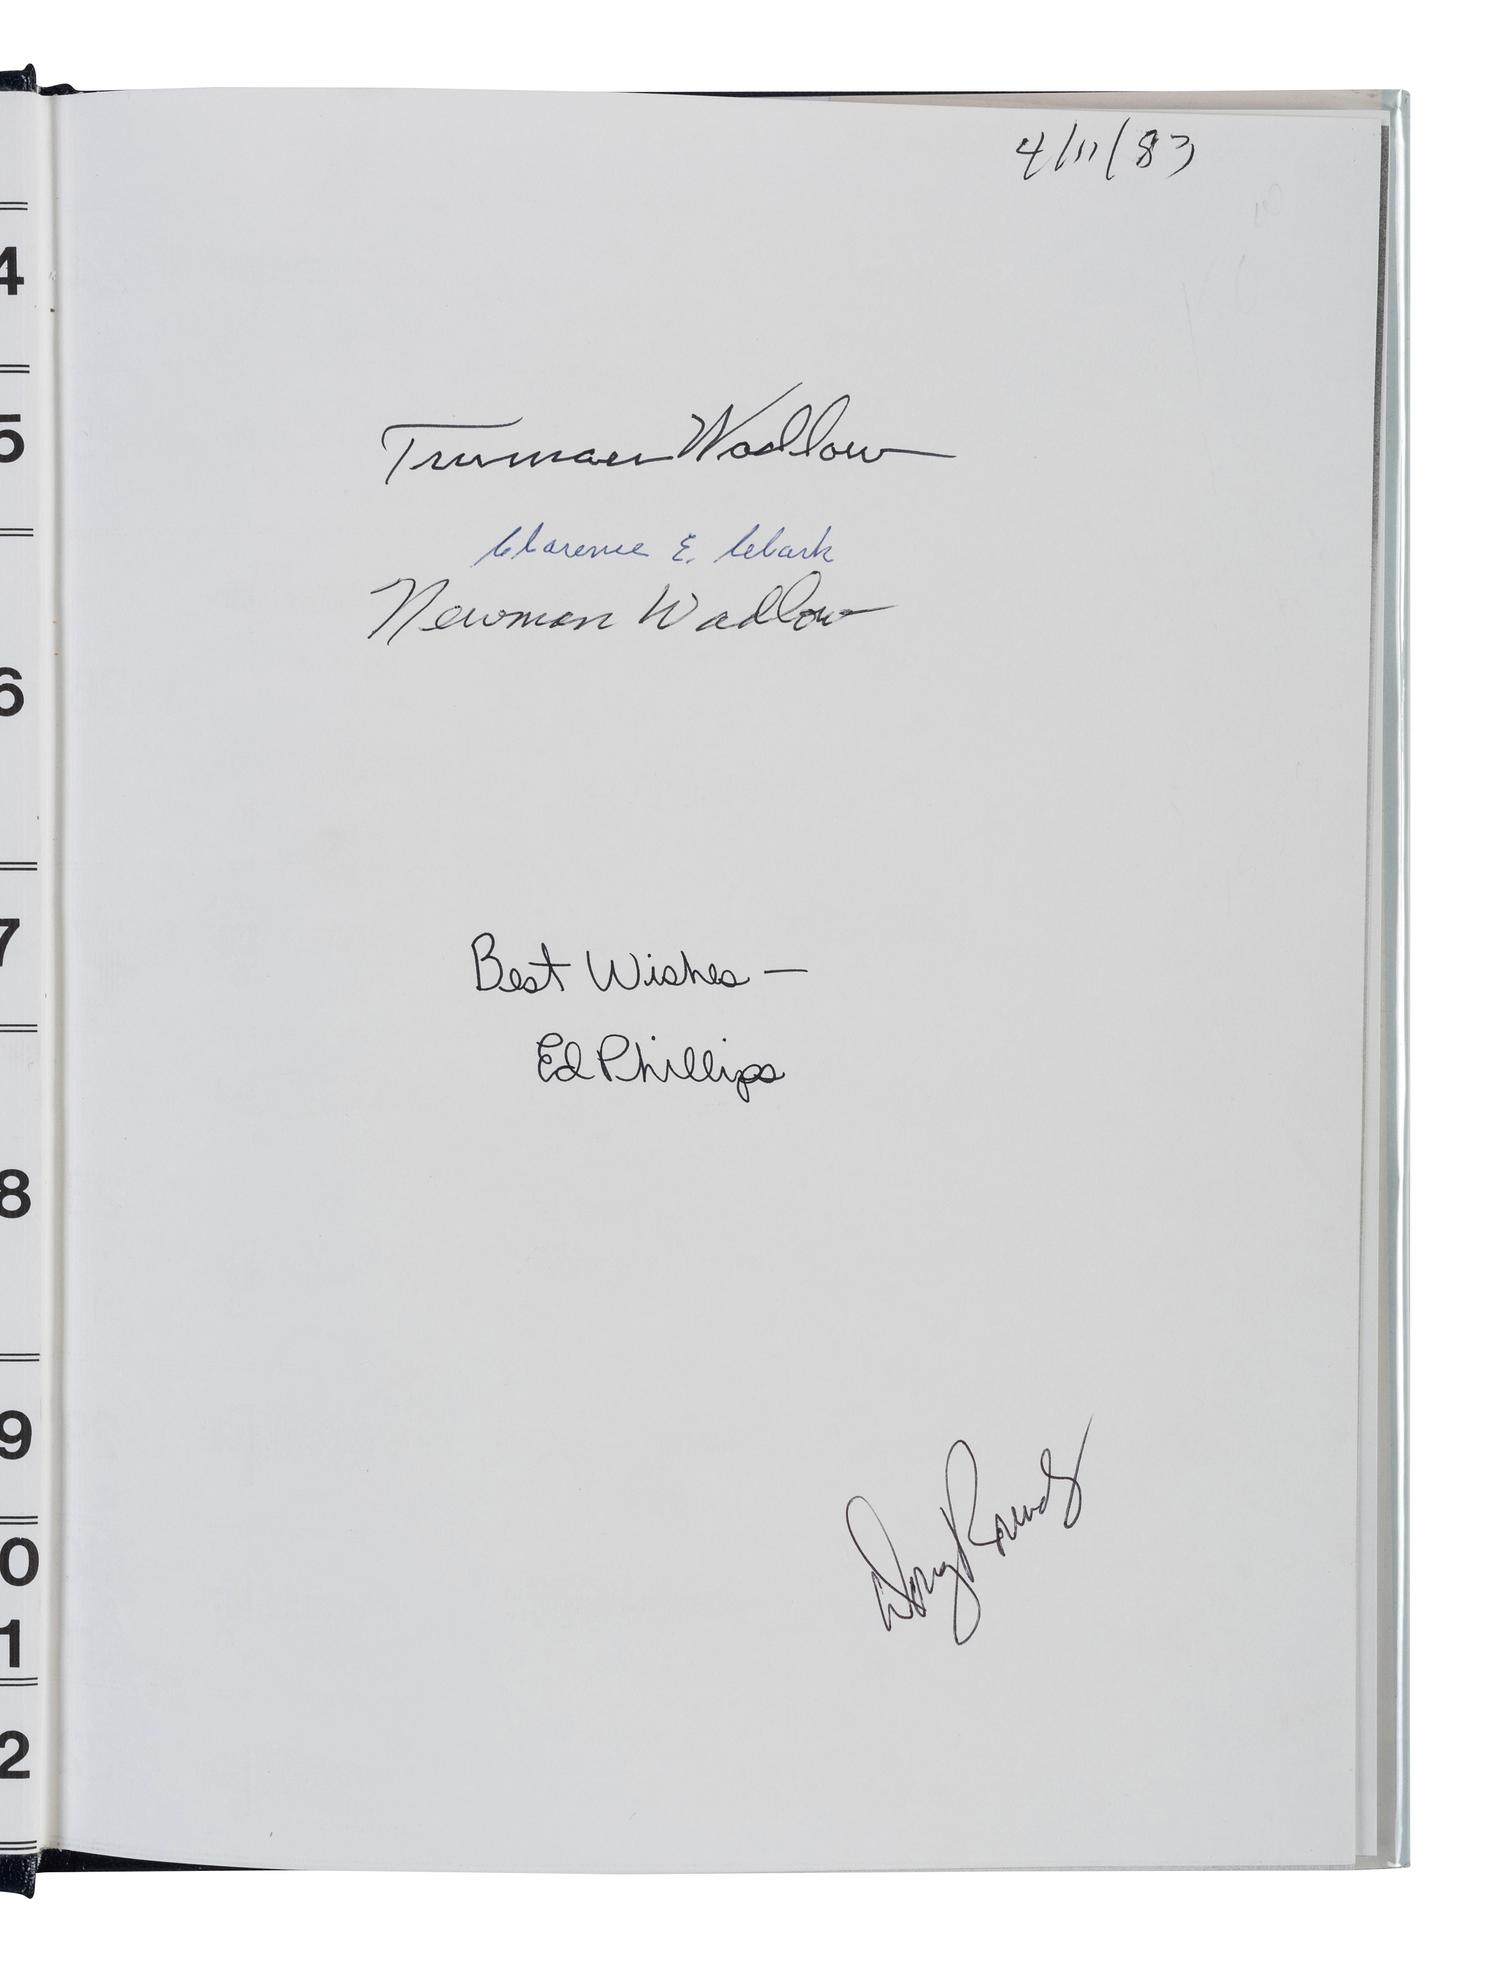 4/11/83
4
5
6
7
8
9
0
1
2
Truman Wadlow
Clarence E. Clark
Newman Wadlow
Best Wishes —
Ed Phillips
Doug Rounds